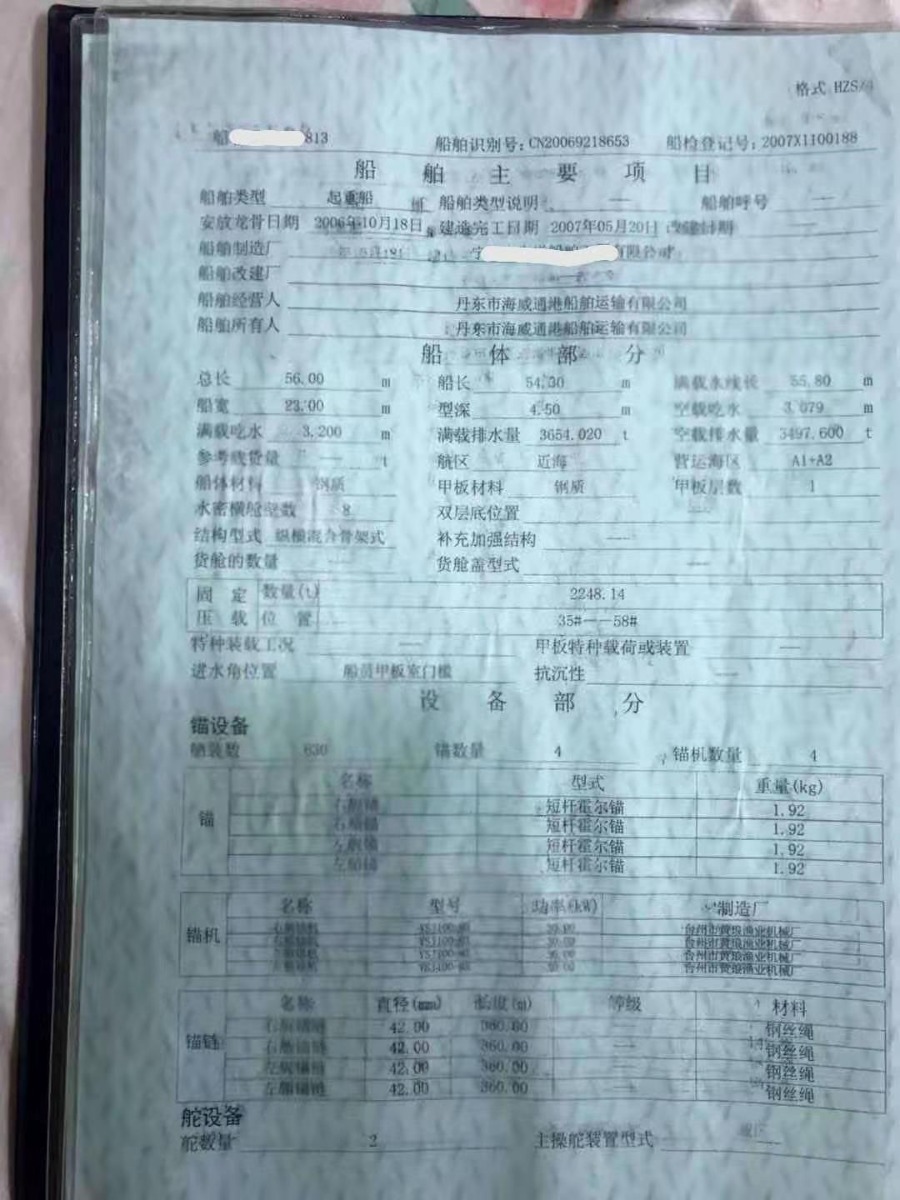 格式 HZS/
船 813 船舶识别号:CN20069218653 船检登记号:2007X1100188
船 舶 主 要 项 目
船舶类型 起重船 船舶类型说明 —— 船舶呼号 ——
安放龙骨日期 2006年10月18日 建造完工日期 2007年05月20日 改建日期
船舶制造厂 有限公司
船舶改建厂
船舶经营人 丹东市海威通港船舶运输有限公司
船舶所有人 丹东市海威通港船舶运输有限公司
船 体 部 分
总长 56.00 m 船长 54.30 m 满载水线长 55.80 m
船宽 23.00 m 型深 4.50 m 空载吃水 3.079 m
满载吃水 3.200 m 满载排水量 3654.020 t 空载排水量 3497.600 t
参考载货量 —— t 航区 近海 营运海区 A1+A2
船体材料 钢质 甲板材料 钢质 甲板层数 1
水密横舱壁数 8 双层底位置 ——
结构型式 纵横混合骨架式 补充加强结构 ——
货舱的数量 —— 货舱盖型式 ——
固 定 数量(t) 2248.14
压 载 位 置 35#——58#
特种装载工况 —— 甲板特种载荷或装置 ——
进水角位置 船员甲板室门槛 抗沉性 ——
设 备 部 分
锚设备
舾装数 630 锚数量 4 锚机数量 4
名称 型式 重量(kg)
锚
短杆霍尔锚 1.92
短杆霍尔锚 1.92
短杆霍尔锚 1.92
短杆霍尔锚 1.92
名称 型号 功率(kW) 制造厂
锚机
台州市黄琅渔业机械厂
台州市黄琅渔业机械厂
台州市黄琅渔业机械厂
台州市黄琅渔业机械厂
名称 直径(mm) 长度(m) 等级 材料
锚链
42.00 360.00 —— 钢丝绳
42.00 360.00 —— 钢丝绳
42.00 360.00 —— 钢丝绳
42.00 360.00 —— 钢丝绳
舵设备
舵数量 2 主操舵装置型式